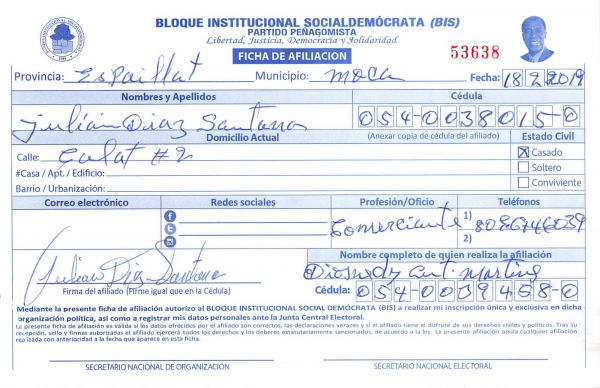 BLOQUE INSTITUCIONAL SOCIALDEMÓCRATA (BIS)
PARTIDO PEÑAGOMISTA
Libertad, Justicia, Democracia y Solidaridad
FICHA DE AFILIACION
53638
Provincia: Espaillat Municipio: Moca Fecha: 18 2 2019
Nombres y Apellidos Cédula
Julián Diaz Santana 054-0038015-0
Domicilio Actual (Anexar copia de cédula del afiliado) Estado Civil
Calle: #2 Casado
#Casa / Apt. / Edificio: Soltero
Barrio / Urbanización: Conviviente
Correo electrónico Redes sociales Profesión/Oficio Teléfonos
Comerciante 1)
2)
Nombre completo de quien realiza la afiliación
Julian Diaz Santana Ant. Martinez
Firma del afiliado (Firme igual que en la Cédula) Cédula: 054-0039458-0
Mediante la presente ficha de afiliación autorizo al BLOQUE INSTITUCIONAL SOCIAL DEMÓCRATA (BIS) a realizar mi inscripción única y exclusiva en dicha
organización política, así como a registrar mis datos personales ante la Junta Central Electoral.
La presente ficha de afiliación es válida si los datos ofrecidos por el afiliado son correctos, las declaraciones veraces y si el afiliado tiene el disfrute de sus derechos civiles y políticos. Tras su
recepción, sello y firmas autorizadas el afiliado ejercerá todos los derechos y los deberes estatutariamente sancionados, de acuerdo a la ley. La presente afiliación anula cualquier afiliación
realizada con anterioridad a la fecha que aparece en esta ficha.
SECRETARIO NACIONAL DE ORGANIZACIÓN SECRETARIO NACIONAL ELECTORAL